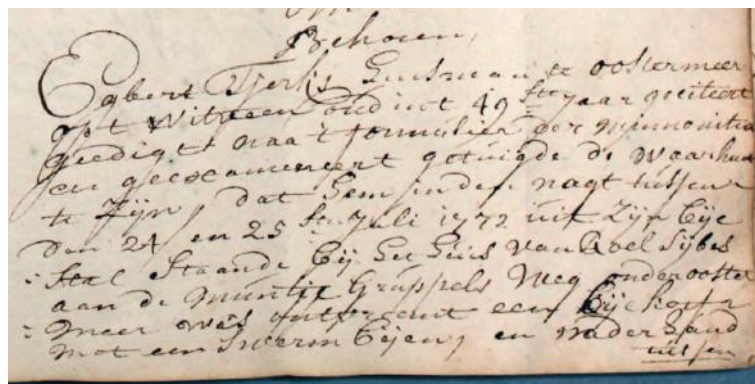 Behoren,
Egbert Tjerks Huisman te oostermeer
op t Witveen oud int 49 ste jaar geciteert
geedigt naa 't formulier der minnoniten
en geexamineert getuigde de waarheid
te zijn, dat hem in den nagt tussen
den 24 en 25 sten Julij 1772 uit zijn Bije
Stal Staande bij het Huis van Roel Sijbes
aan de Muntje Gruppels Weg onder ooster
meer was ontvremt een Bijekorf
met een Swerm Bijen, en naderhand
tussen